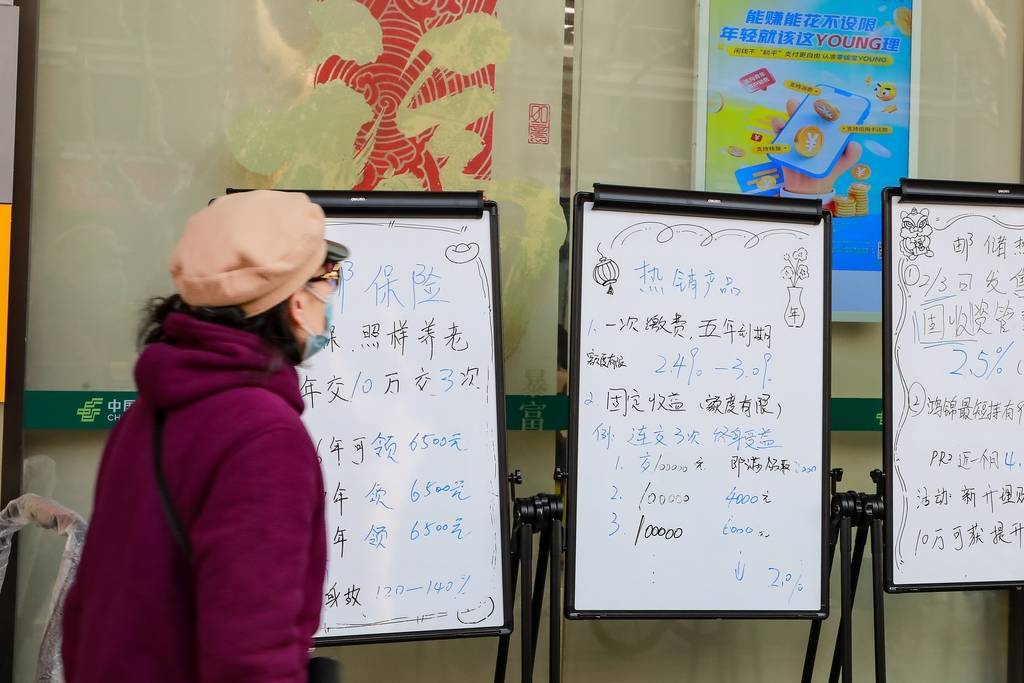 能赚能花不设限
年轻就该这YOUNG理
支持消费
支持信用卡还款
支持转账
如意
保险
照样养老
年交10万交3次
年可领 6500元
年 领 6500元
年 领 6500元
身故 120—140%
热销产品
年
1. 一次缴费,五年到期
额度有限 2.4% — 3.0%
2. 固定收益(额度有限)
例: 连交3次 终身受益
1. 交100000元
2. 100000 4000元
3 100000 6000元
⋮ ↓ 2.0%
暴富
中国
CH
邮储热
① 2/3日发售
固收资管
2.5%(
② 鸿锦最短持有
PR2 近一个月4.
活动: 新开理财
10万可获提升